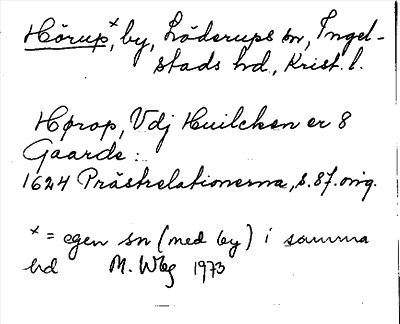 Hörup*, by, Löderups sn, Ingel-
stads hd, Krist. l.
Hørop, Vdj Huilcken er 8
Gaarde:
1624 Prästrelationerna, s. 87. orig.
* = egen sn (med by) i samma
hd M. Wbg 1973